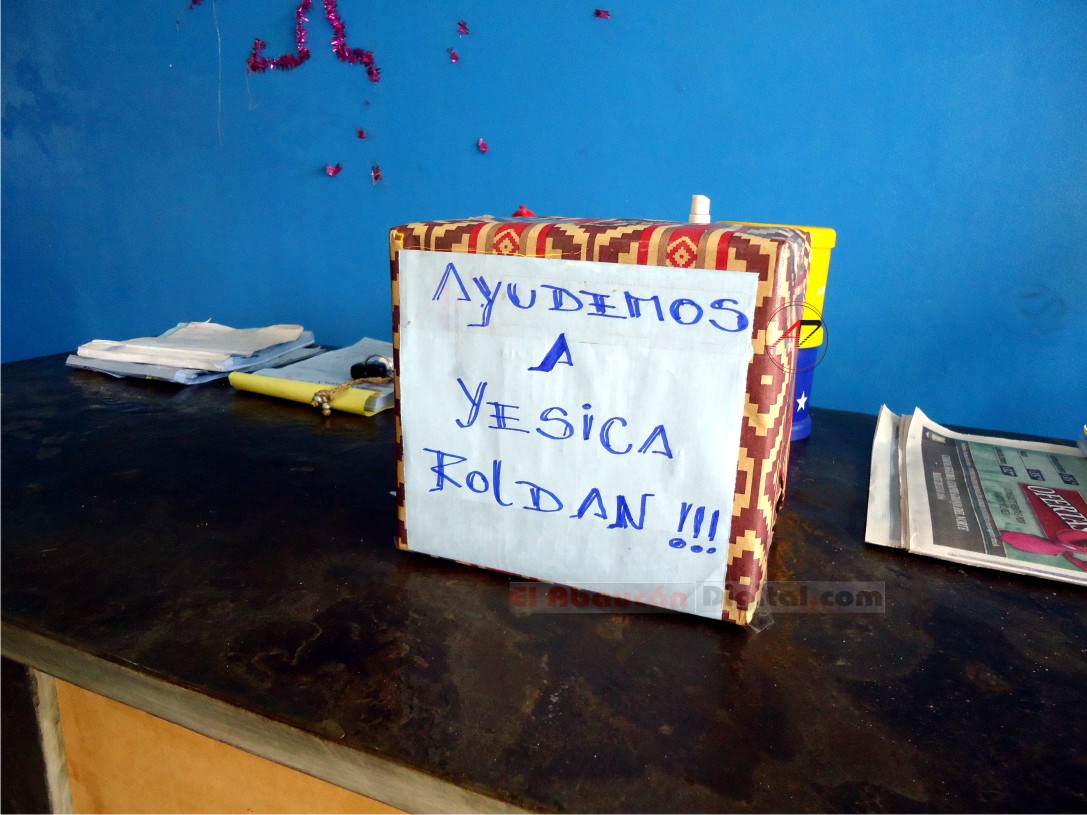 AYUDEMOS
A
YESICA
ROLDAN !!!
El Abaucán Digital.com